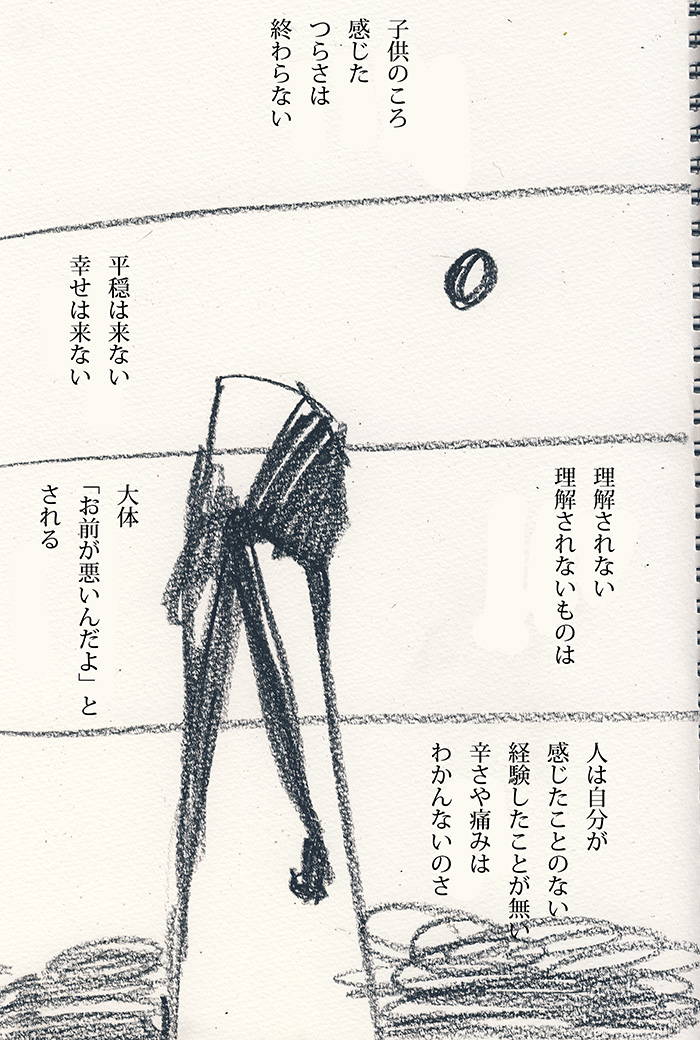 子供のころ
感じた
つらさは
終わらない
平穏は来ない
幸せは来ない
理解されない
理解されないものは
大体
「お前が悪いんだよ」と
される
人は自分が
感じたことのない
経験したことが無い
辛さや痛みは
わかんないのさ